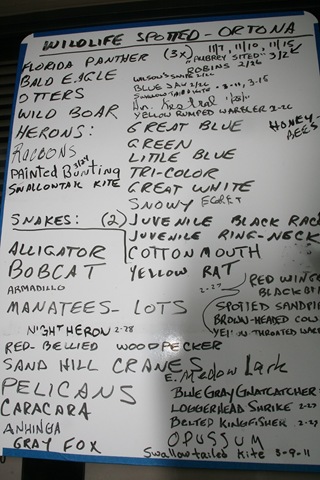 WILDLIFE SPOTTED - ORTONA
FLORIDA PANTHER (3x) 11/7, 11/10, 11/15
ROBINS 2/26
BALD EAGLE WILSON'S SNIPE 2/26
OTTERS BLUE JAY 2/26
WILD BOAR YELLOW RUMPED WARBLER 2-26
HERONS: GREAT BLUE HONEY-BEES
RACOONS GREEN
LITTLE BLUE
PAINTED BUNTING 3/24 TRI-COLOR
SWALLONTAIL KITE GREAT WHITE
SNOWY EGRET
SNAKES: (2) JUVENILE BLACK RAC
JUVENILE RING-NECK
ALLIGATOR COTTONMOUTH
BOBCAT YELLOW RAT
ARMADILLO 2-27 RED WING BLACK BI
MANATEES- LOTS SPOTTED SANDPI
BROWN-HEADED COW
NIGHT HERON 2-28 YELLOW THROATED WAR
RED-BELLIED WOODPECKER
SAND HILL CRANES
E. Meadow Lark
PELICANS BLUE GRAY GNATCATCHER
CARACARA LOGGERHEAD SHRIKE 2-27
ANHINGA BELTED KINGFISHER 2-27
GRAY FOX OPUSSUM
Swallow tailed Kite 3-9-11